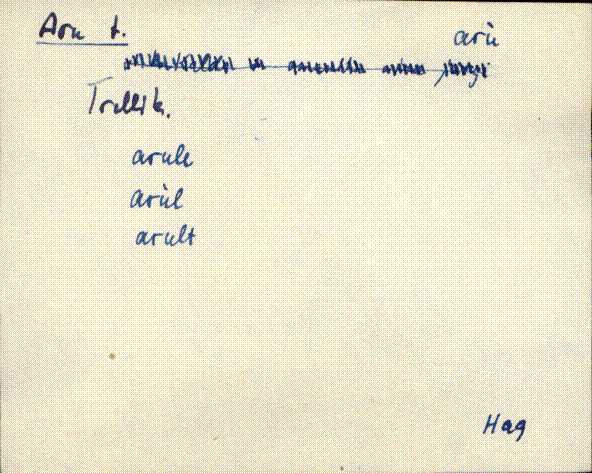 Aru t.
arù
Trullik.
arule
arùl
arult
Hag